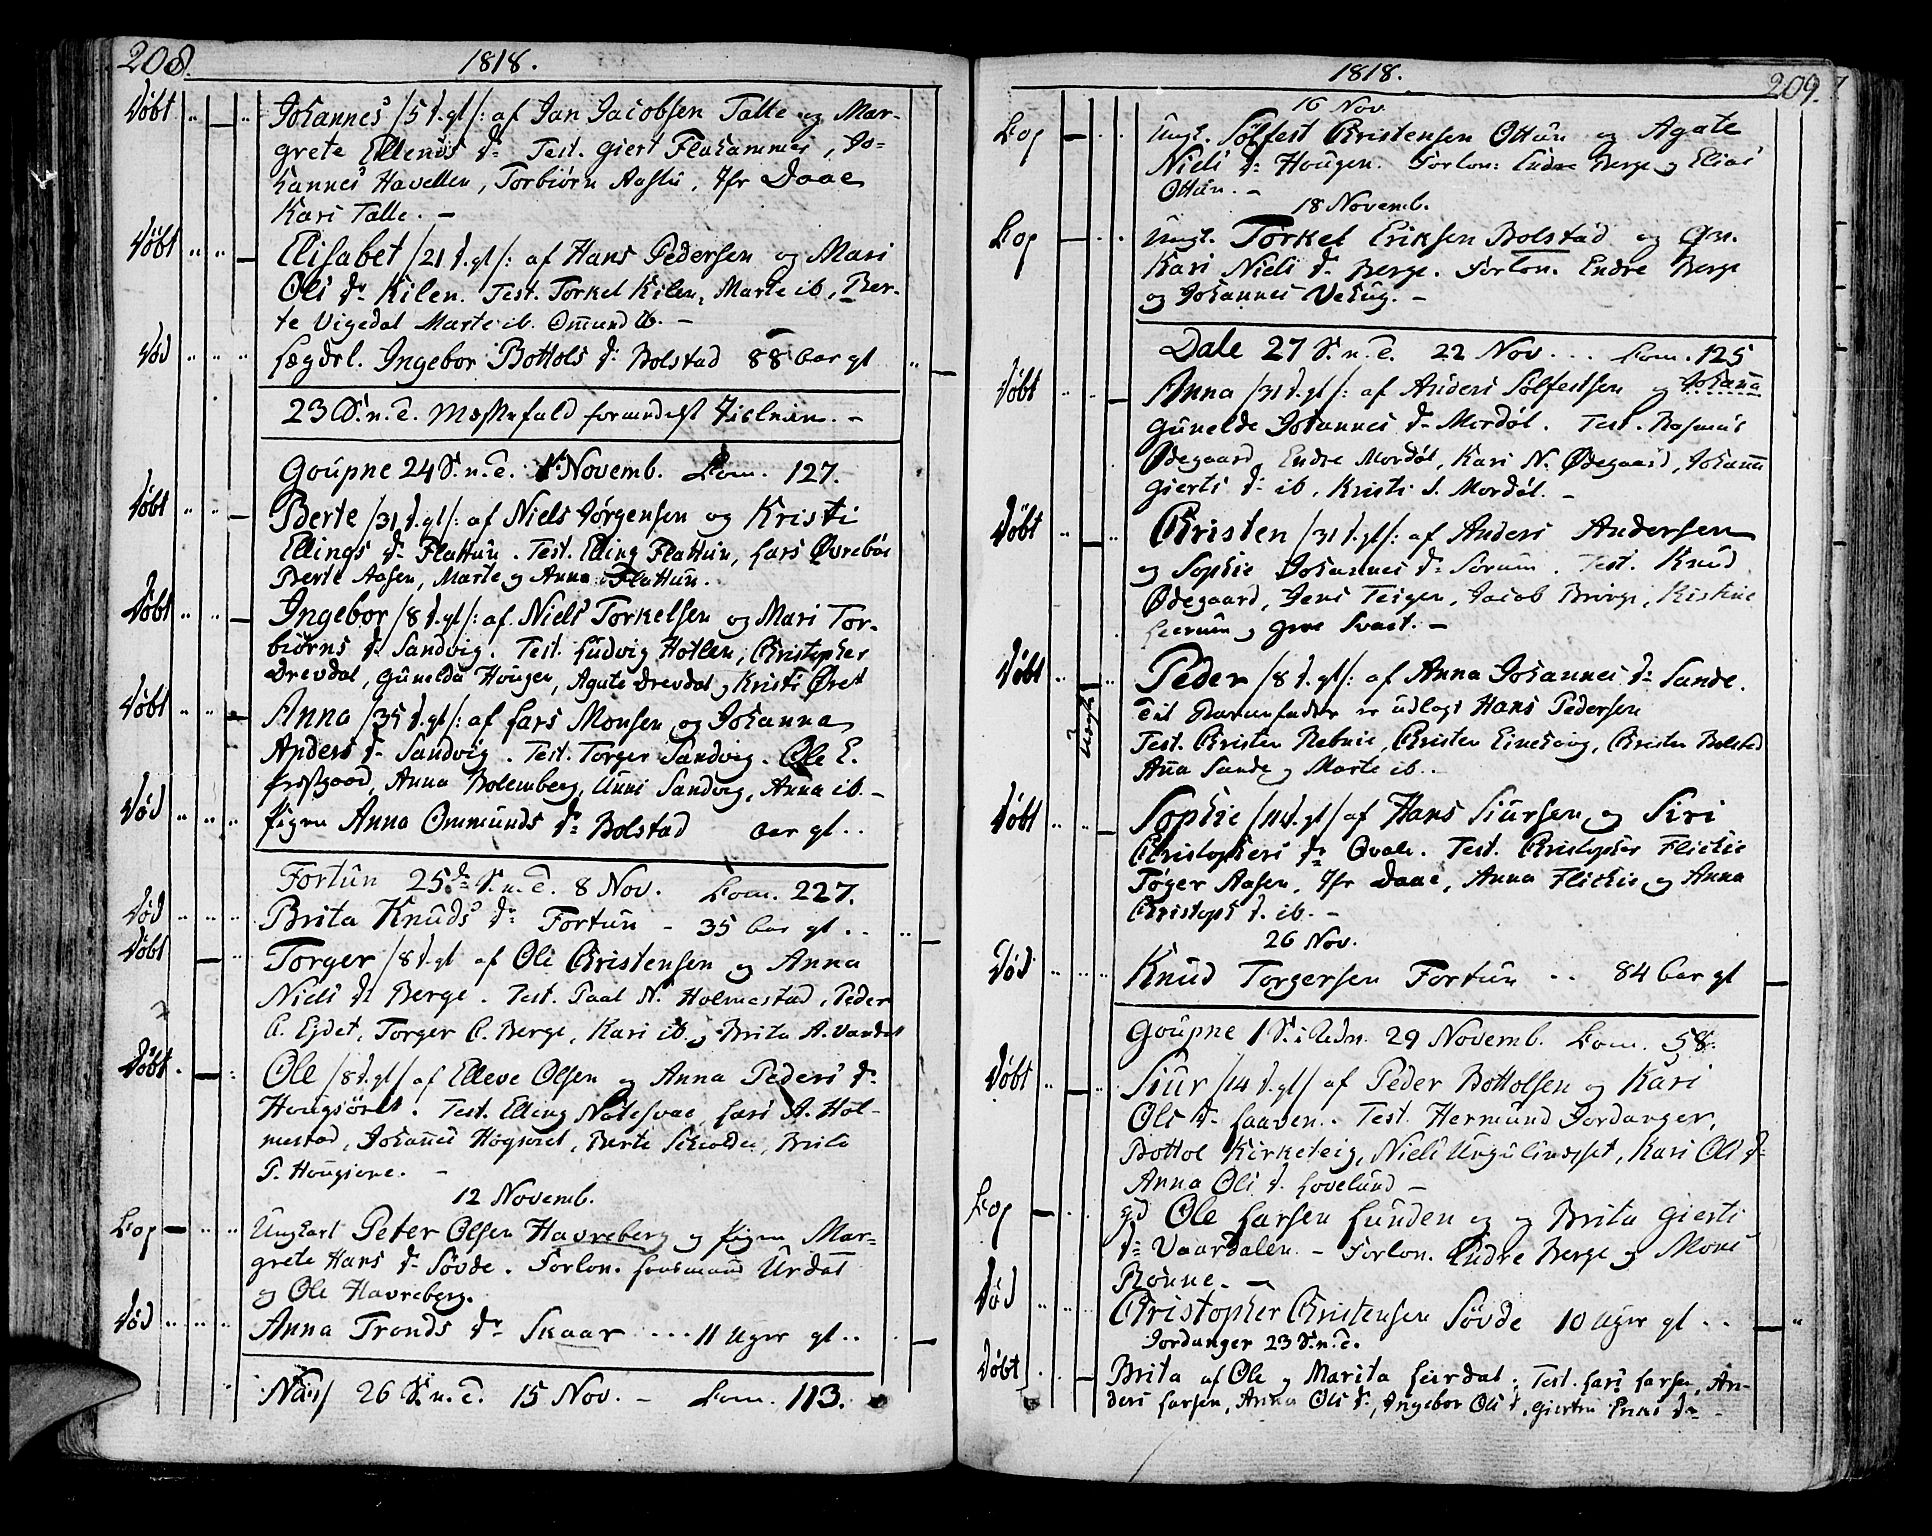 208.
1818.
Døbt Johannes /5 d. gl/: af Jan Jacobsen Talle og Mar-
grete Ellends dr Test. Giert Flahammer, Jo-
hannes Havellen, Torbiørn Aasta, Jfr Daae
Kari Talle. –
Døbt Elisabet /21 d. gl/: af Hans Pedersen og Mari
Ols dr Kilen. Test. Torkel Kilen, Marte ib, Ber-
te Vigedal Marte ib. Omund ib. –
Død Lægdrl. Ingebor Bottols dr Bolstad 88 aar gl
23 S. n. T. Messefald formedelst
Goupne 24 S. n. T. 1 Novemb. Kom. 127.
Døbt Berte /31 d. gl/: af Niels Jørgensen og Kristi
Ellings dr Flattun. Test. Elling Flattun, Lars Øvrebøe
Berte Aasen, Marte og Anna Flattun.
Døbt Ingebor /8 d. gl/: af Niels Torkelsen og Mari Tor-
biørns dr Sandvig. Test. Ludvig Hotlen, Christopher
Drevdal, Gunelda Hougen, Agate Drevdal og Kristi Øret
Døbt Anna /35 d. gl/: af Lars Monsen og Johanna
Anders dr Sandvig. Test. Torger Sandvig. Ole E.
Anna Bolemberg, Unni Sandvig, Anna ib. –
Død Pigen Anna Ommunds dr Bolstad aar gl ..
Fortun 25de S. n. T. 8 Nov. Kom. 227.
Død Brita Knuds dr Fortun – 35 aar gl ..
Døbt Torger /8 d. gl af Ole Christensen og Anna
Niels dr Berge. Test. Paal N. Holmestad, Peder
C. Eidet, Torger C. Berge, Kari ib og Brita A. Vardal
Døbt Ole /8 d. gl/ af Elleve Olsen og Anna Peders dr
Hougsøret. Test. Elling Lars A. Hol-
mestad, Johannes Høgsøret, Berte Brita
P. Hougsøre. –
12 Novemb.
Kop Ungkarl Peter Olsen Havreberg og Pigen Mar-
grete Hans dr Søvde. Forlon. Lensmand Urdal
og Ole Havreberg.
Død Anna Tronds dr Skaar ... 11 Uger gl ..
Næs 26 S. n. T. 15 Nov. – Kom. 113.
1818.
209.
16 Nov.
Kop Ungk. Sølfest Christensen Ottun og Agate
Niels dr Hougen. Forlon: Endre Berge og Elias
Ottun. –
18 Novemb.
Kop Ungk. Torkel Eriksen Bolstad og
Kari Niels dr Berge. Forlon. Endre Berge
og Johannes
Dale 27 S. n. T. 22 Nov. .. Kom. 125
Døbt Anna /31 d. gl/: af Anders Sølfestsen og Johanna
Gunelde Johannes dr Mordøl. Test. Rasmus
Ødegaard, Endre Mordøl, Kari N. Ødegaard, Johanna
Gierts dr ib, Kristi J. Mordøl. –
Døbt Christen /31 d. gl/: af Anders Andersen
og Sophie Johannes dr Test. Knud
Ødegaard, Jens Teigen, Jacob Kristine
og Svart. –
Døbt Peder /8 d. gl/: af Anna Johannes dr Sande.
Uægte
Til Barnefader er udlagt Hans Pedersen
Test. Christen Christen Christen Bolstad
Anna Sande og Marte ib.
Døbt Sophie /14 d. gl/ af Hans Siursen og Siri
Christophers dr Qvale. Test. Christopher
Tøger Aasen, Jfr Daae, Anna og Anna
Christophs d. ib. –
26 Nov.
Død Knud Torgersen Fortun .. 84 aar gl
Goupne 1 S. i Adv. 29 Novemb. Kom. 58.
Døbt Siur /14 d. gl/ af Peder Bottolsen og Kari
Ols dr Laaven. Test. Hermund Jordanger,
Bottol Kirketeig, Niels Kari Ols dr
Anna Ols d. Lovelund –
Kop Ole Larsen Lunden og Brita Gierts
dr Vaardalen – Forlon. Endre Berge og Mons
Rønne. –
Død Christopher Christensen Søvde 10 Uger gl ..
Jordanger 23 S. n. T.
Døbt Brita af Ole og Marita Leirdal, Test. Lars Larsen, An-
ders Larsen, Anna Ols dr, Ingebor Ols d, Giertru dr –